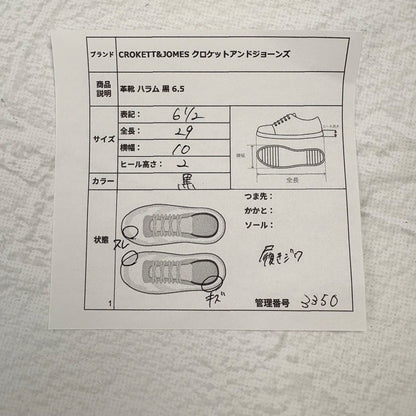 ブランド CROKETT&JOMES クロケットアンドジョーンズ
商品説明 革靴 ハラム 黒 6.5
サイズ
表記： 6 1/2
全長： 29
横幅： 10
ヒール高さ： 2
ヒール高さ
横幅
全長
カラー 黒
状態
スレ
キズ
つま先：
かかと：
ソール：
履きジワ
1
管理番号 3350